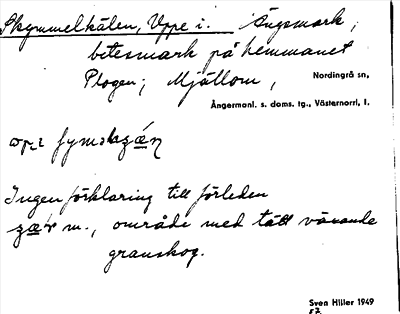 Skymmelkälen, Uppe i. Ängsmark,
betesmark på hemmanet
Plogen; Mjällom, Nordingrå sn,
Ångermanl. s. doms. tg., Västernorrl. l.
Ingen förklaring till förleden
m., område med tätt växande
granskog.
Sven Hiller 1949